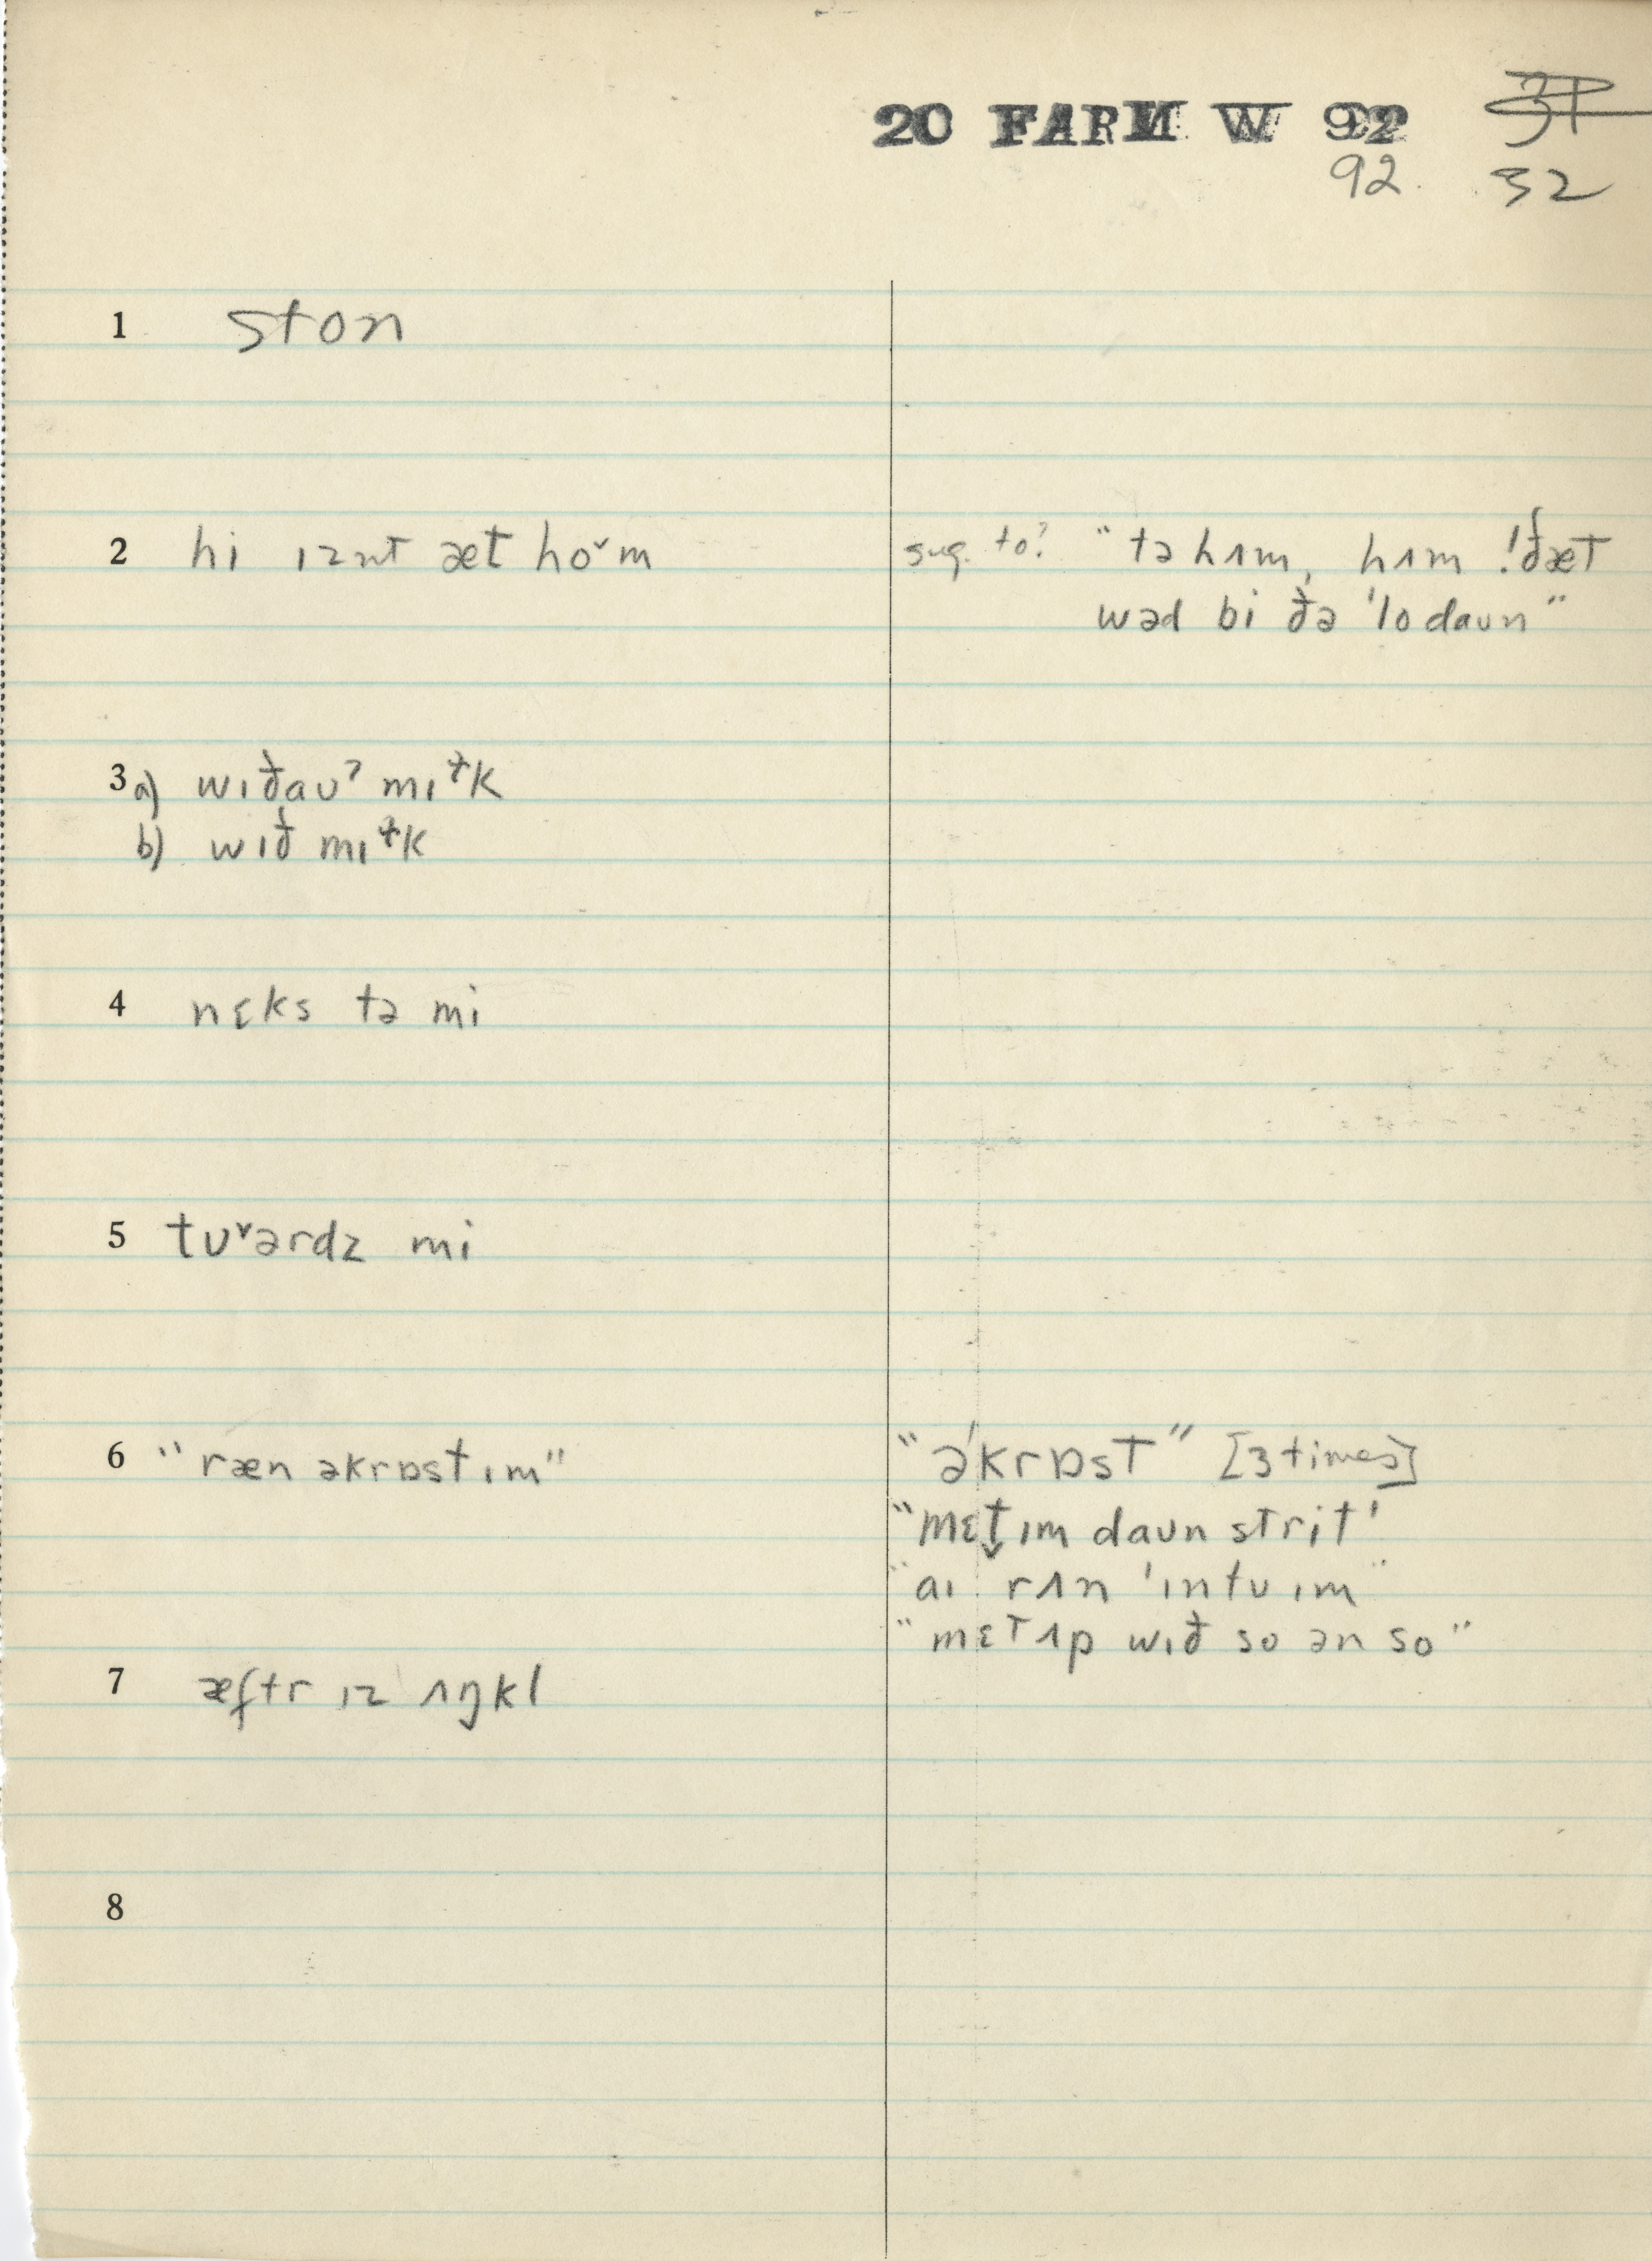 20 FARM W 92
92. 32
1 ston
2 hi ɪznt æt hoˇm sug. to? "tə hʌm, hʌm !ðæt
wəd bi ðə 'lo daun"
3 a) wɪðaʊˀ mɪɫk
b) wɪð mɪɫk
4 nɛks tə mi
5 tʊˇərdz mi
6 "ræn əkrɒst ɪm" "ə'krɒst" [3 times]
"mɛt̬ ɪm daʊn strit'
"aɪ rʌn 'ɪntʊ ɪm"
"mɛt ʌp wɪð so ən so"
7 æftr ɪz ʌŋkl
8